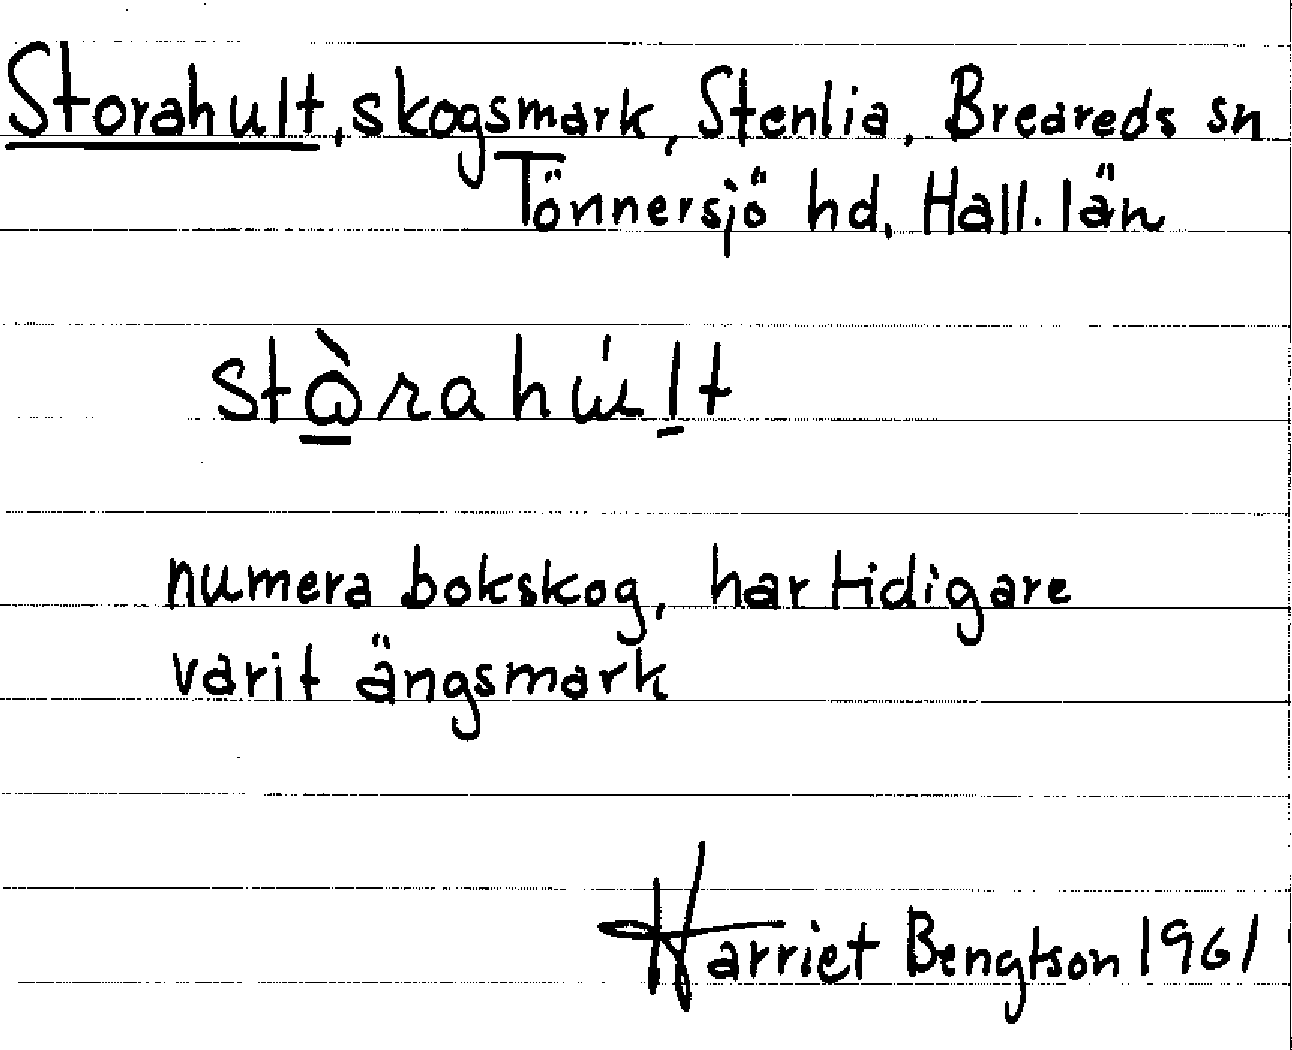 Storahult, skogsmark, Stenlia, Breareds sn
Tönnersjö hd, Hall. län
numera bokskog, har tidigare
varit ängsmark
Harriet Bengtson 1961